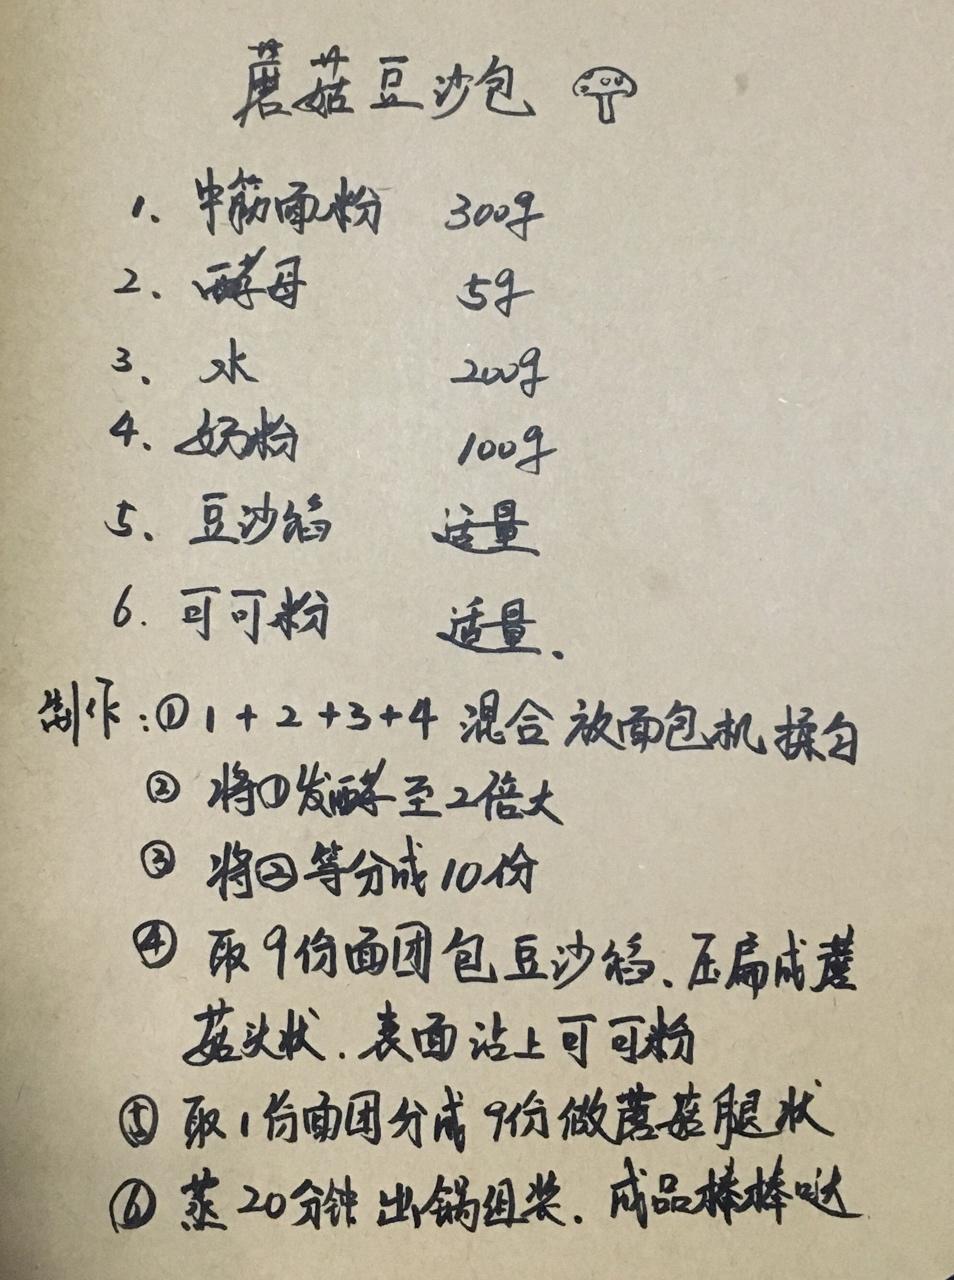 蘑菇豆沙包
1、中筋面粉 300g
2、酵母 5g
3、水 200g
4、奶粉 100g
5、豆沙馅 适量
6.可可粉 适量、
制作:①1+2+3+4 混合放面包机揉匀
②将①发酵至2倍大
③将②等分成10份
④取9份面团包豆沙馅、压扁成蘑
菇头状.表面沾上可可粉
⑤取1份面团分成9份做蘑菇腿状
⑥蒸20分钟出锅组装.成品棒棒哒